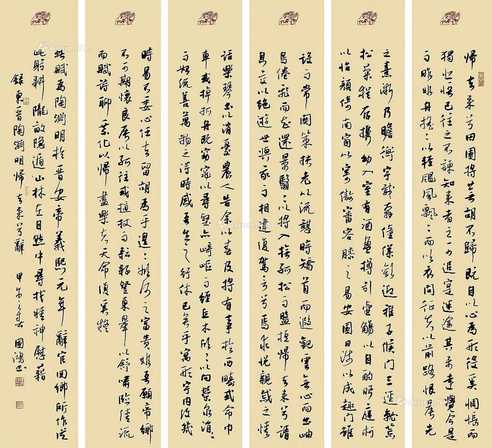 歸去來兮田園將蕪胡不歸既自以心為形役奚惆悵而
獨悲悟已往之不諫知來者之可追實迷途其未遠覺今是
而昨非舟搖搖以輕颺風飄飄而吹衣問征夫以前路恨晨光
之熹微乃瞻衡宇載欣載奔僮僕歡迎稚子候門三徑就荒
松菊猶存攜幼入室有酒盈樽引壺觴以自酌眄庭柯
以怡顏倚南窗以寄傲審容膝之易安園日涉以成趣門雖
設而常關策扶老以流憩時矯首而遐觀雲無心而出岫
鳥倦飛而知還景翳翳以將入撫孤松而盤桓歸去來兮請
息交以絕遊世與我而相違復駕言兮焉求悅親戚之情
話樂琴書以消憂農人告余以春及將有事於西疇或命巾
車或棹孤舟既窈窕以尋壑亦崎嶇而經丘木欣欣以向榮泉涓涓
而始流善萬物之得時感吾生之行休已矣乎寓形宇內復幾
時曷不委心任去留胡為乎遑遑欲何之富貴非吾願帝鄉
不可期懷良辰以孤往或植杖而耘耔登東皋以舒嘯臨清流
而賦詩聊乘化以歸盡樂夫天命復奚疑
此賦為陶淵明於晉安帝義熙元年辭官回鄉所作從
此躬耕隴畝隱遁山林在自然中尋找精神慰藉
錄東晉陶淵明歸去來兮辭 甲午 國鴻書